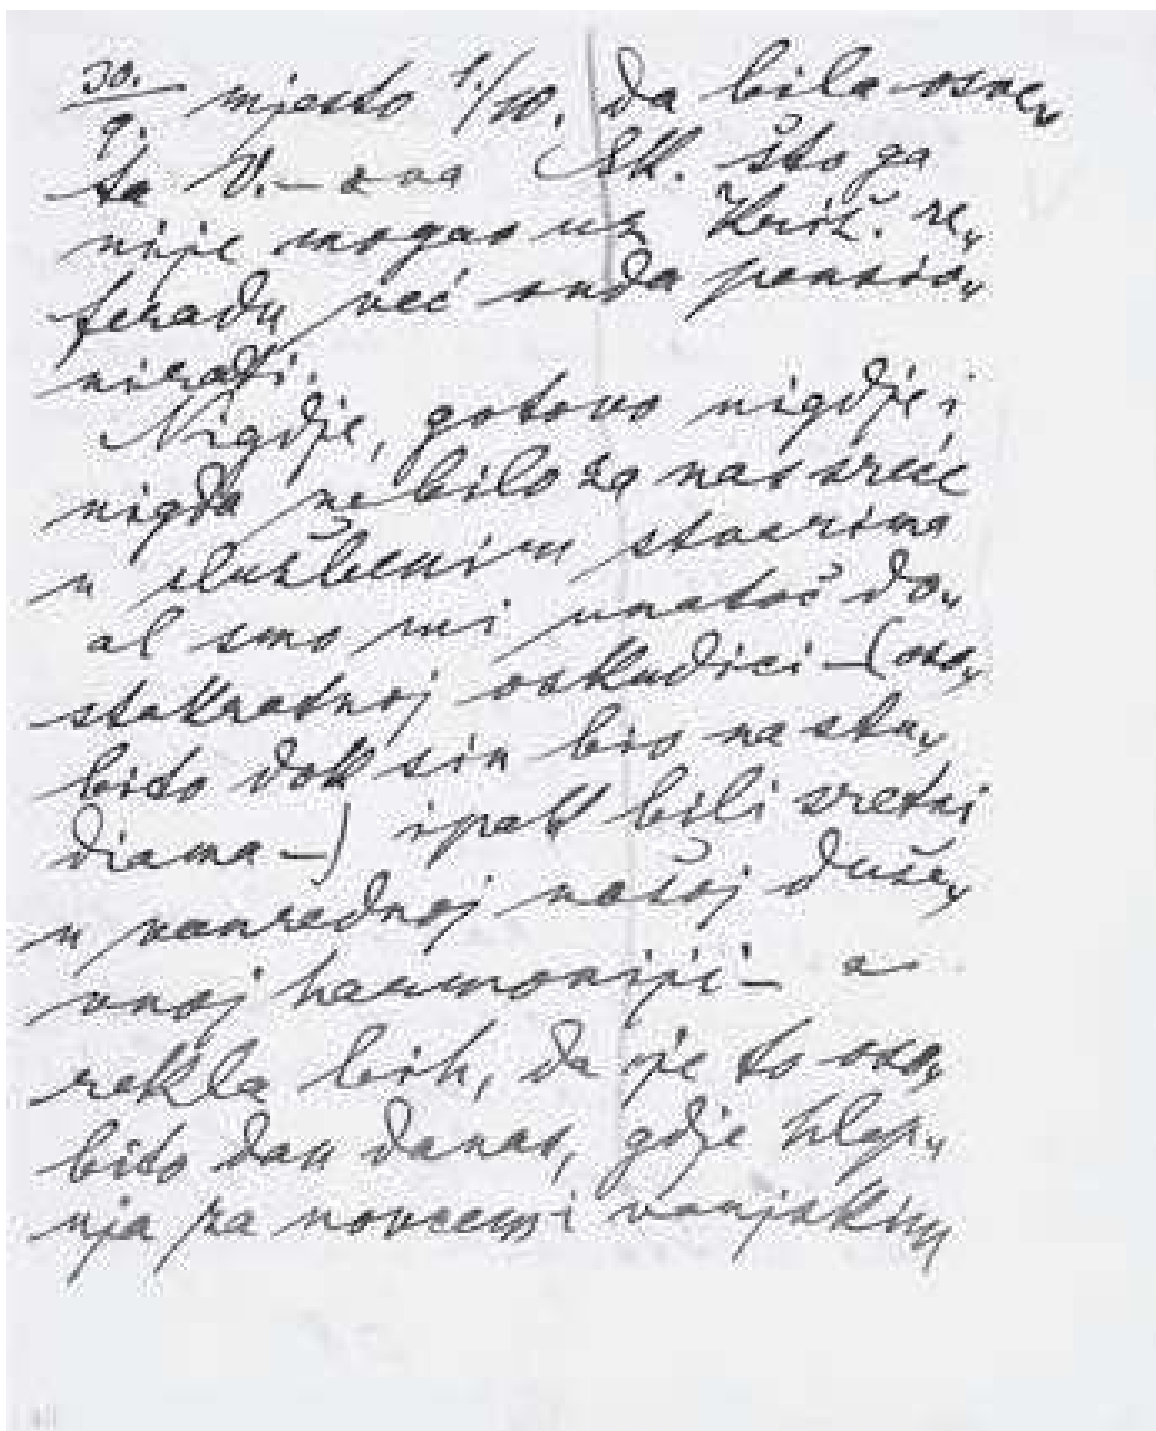 30./9. mjesto 1./10. da bila osne„
ta V. – ova Sk. što ga
nije mogao uz Križ. re„
feradu već onda pensio„
nirati.
Nigdje, gotovo nigdje i
nigda ne bilo za nas sreće
u službenim stvarima
al smo mi unatoč do„
stakratnoj oskudici – (oso„
bito dok sin bio na stu„
diama –) ipak bili sretni
u vanrednoj našoj duše„
vnoj harmoniji – a
rekla bih, da je to oso„
bito dan danas, gdje hlep„
nja za novcem i vanjskim